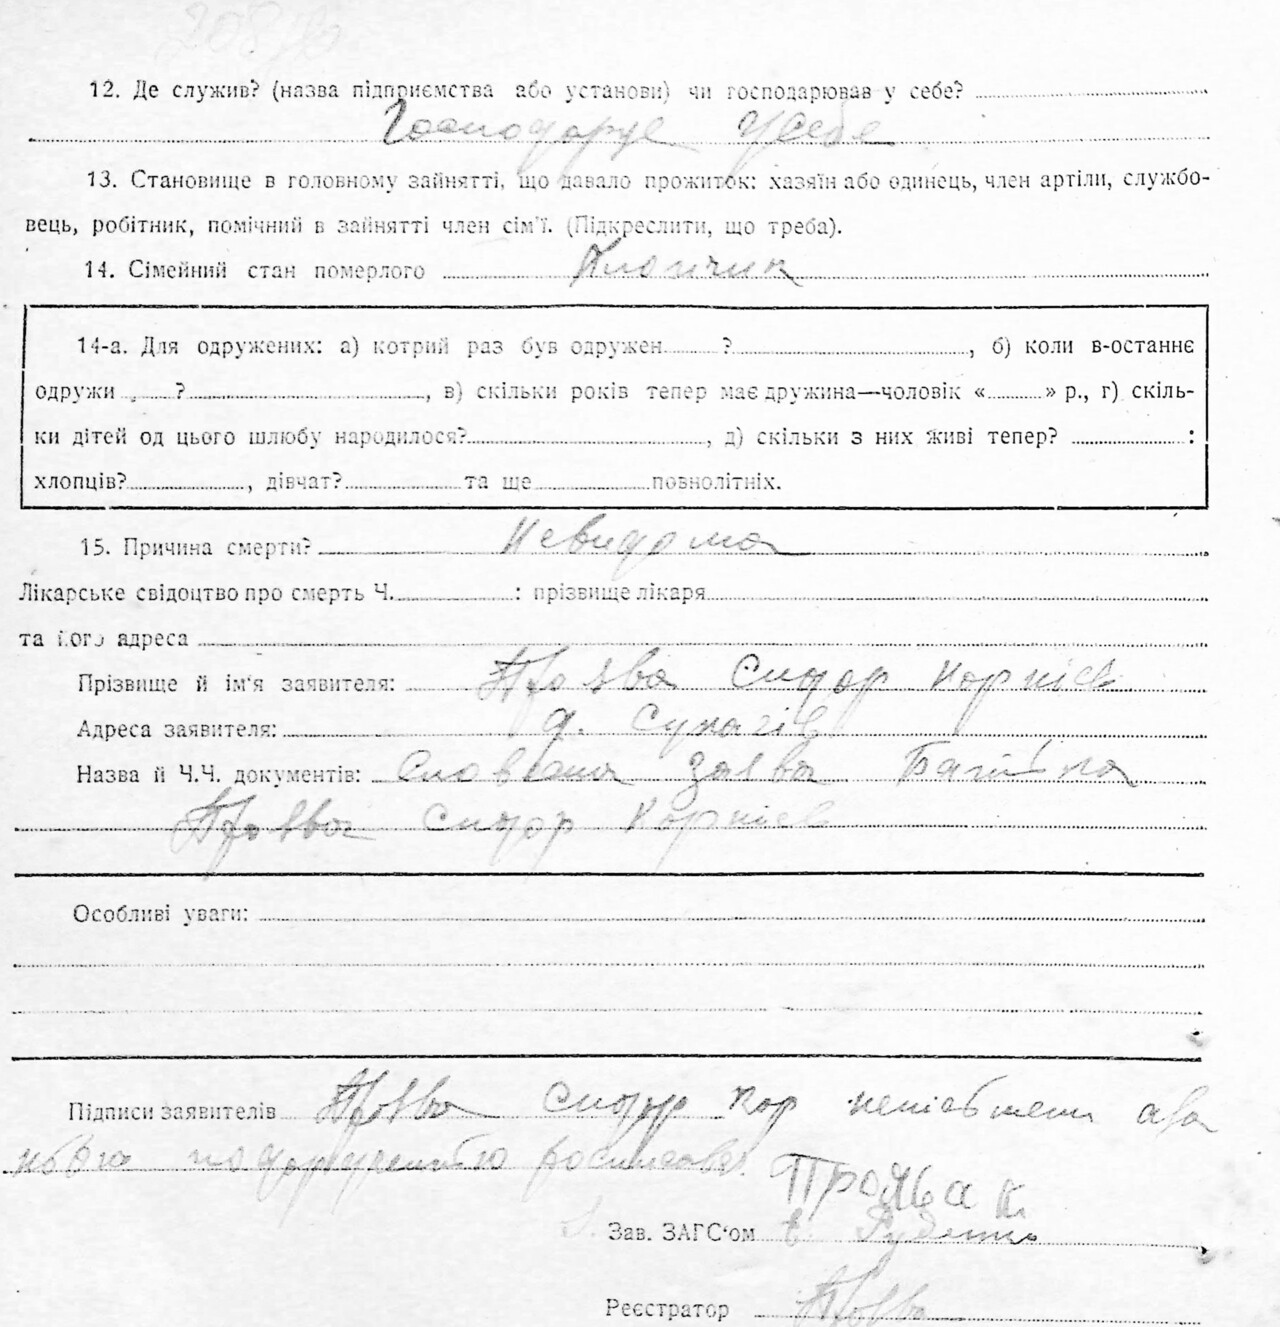 12. Де служив? (назва підприємства або установи) чи господарював у себе?
Господарує у себе
13. Становище в головному зайнятті, що давало прожиток: хазяїн або одинець, член артіли, службо-
вець, робітник, помічний в зайнятті член сім'ї. (Підкреслити, що треба).
14. Сімейний стан померлого Хлопчик
14-а. Для одружених: а) котрий раз був одружен ? , б) коли в-останнє
одружи ? , в) скільки років тепер має дружина—чоловік « » р., г) скіль-
ки дітей од цього шлюбу народилося? , д) скільки з них живі тепер? :
хлопців? , дівчат? та ще повнолітніх.
15. Причина смерти? Невидома
Лікарське свідоцтво про смерть Ч. : прізвище лікаря
та його адреса
Прізвище й ім'я заявителя: Проява Сидор Корнієв
Адреса заявителя: Сукачів
Назва й Ч.Ч. документів: Словесна Заява Батька
Проява Сидор Корнієв
Особливі уваги:
Підписи заявителів Проява Сидор Кор
росписався
Проява К
Зав. ЗАГС'ом Руденко
Реєстратор Проява